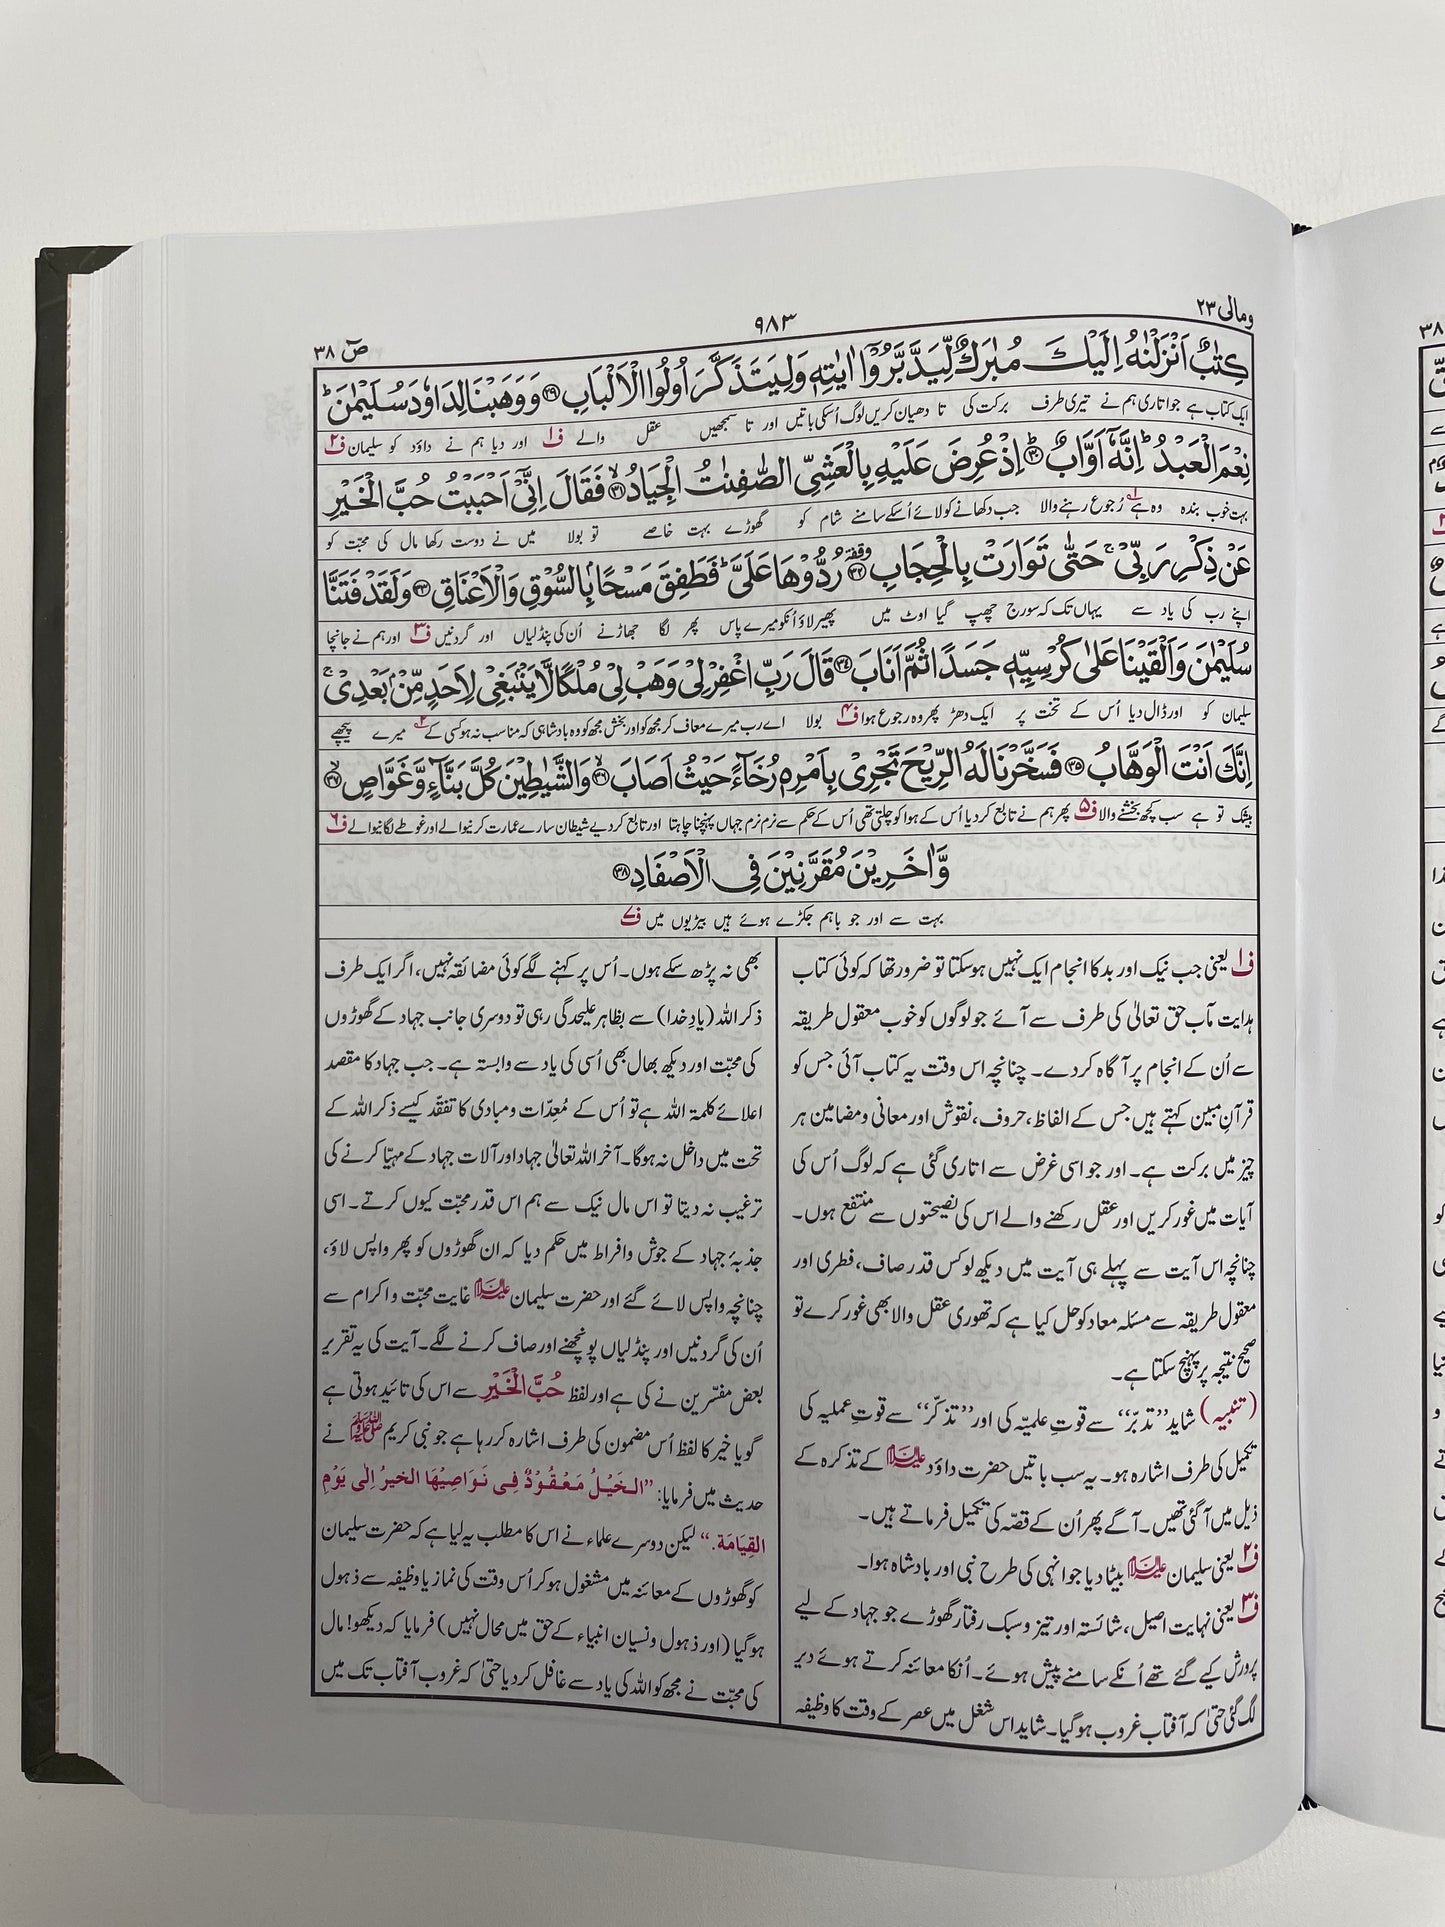 ومالی ۲۳
۹۸۳
صٓ ۳۸
كِتٰبٌ اَنْزَلْنٰهُ اِلَيْكَ مُبٰرَكٌ لِّيَدَّبَّرُوْٓا اٰيٰتِهٖ وَلِيَتَذَكَّرَ اُولُوا الْاَلْبَابِ ۝۲۹ وَوَهَبْنَا لِدَاوٗدَ سُلَيْمٰنَ ؕ
ایک کتاب ہے جو اتاری ہم نے تیری طرف برکت کی تا دھیان کریں لوگ اُسکی باتیں اور تا سمجھیں عقل والے ف۱ اور دیا ہم نے داؤد کو سلیمان ف۲
نِعْمَ الْعَبْدُ ؕ اِنَّهٗٓ اَوَّابٌ ۝۳۰ؕ اِذْ عُرِضَ عَلَيْهِ بِالْعَشِيِّ الصّٰفِنٰتُ الْجِيَادُ ۝۳۱ۙ فَقَالَ اِنِّيْٓ اَحْبَبْتُ حُبَّ الْخَيْرِ
بہت خوب بندہ وہ ہے رُجوع رہنے والا جب دکھانے کو لائے اُسکے سامنے شام کو گھوڑے بہت خاصے تو بولا میں نے دوست رکھا مال کی محبّت کو
عَنْ ذِكْرِ رَبِّيْ ۚ حَتّٰى تَوَارَتْ بِالْحِجَابِ ۝۳۲ وقفة رُدُّوْهَا عَلَيَّ ؕ فَطَفِقَ مَسْحًۢا بِالسُّوْقِ وَالْاَعْنَاقِ ۝۳۳ وَلَقَدْ فَتَنَّا
اپنے رب کی یاد سے یہاں تک کہ سورج چھپ گیا اوٹ میں پھیر لاؤ اُنکو میرے پاس پھر لگا جھاڑنے اُن کی پنڈلیاں اور گردنیں ف۳ اور ہم نے جانچا
سُلَيْمٰنَ وَاَلْقَيْنَا عَلٰى كُرْسِيِّهٖ جَسَدًا ثُمَّ اَنَابَ ۝۳۴ قَالَ رَبِّ اغْفِرْ لِيْ وَهَبْ لِيْ مُلْكًا لَّا يَنْۢبَغِيْ لِاَحَدٍ مِّنْۢ بَعْدِيْ ۚ
سلیمان کو اور ڈال دیا اُس کے تخت پر ایک دھڑ پھر وہ رجوع ہوا ف۴ بولا اے رب میرے معاف کر مجھ کو اور بخش مجھ کو وہ بادشاہی کہ مناسب نہ ہو کسی کے میرے پیچھے
اِنَّكَ اَنْتَ الْوَهَّابُ ۝۳۵ فَسَخَّرْنَا لَهُ الرِّيْحَ تَجْرِيْ بِاَمْرِهٖ رُخَآءً حَيْثُ اَصَابَ ۝۳۶ۙ وَالشَّيٰطِيْنَ كُلَّ بَنَّآءٍ وَّغَوَّاصٍ ۝۳۷ۙ
بیشک تو ہے سب کچھ بخشنے والا ف۵ پھر ہم نے تابع کر دیا اُس کے ہوا کو چلتی تھی اُس کے حکم سے نرم نرم جہاں پہنچنا چاہتا اور تابع کر دیے شیطان سارے عمارت کرنیوالے اور غوطے لگانیوالے ف۶
وَّاٰخَرِيْنَ مُقَرَّنِيْنَ فِي الْاَصْفَادِ ۝۳۸
بہت سے اور جو باہم جکڑے ہوئے ہیں بیڑیوں میں ف۷
ف۱ یعنی جب نیک اور بد کا انجام ایک نہیں ہو سکتا تو ضرور تھا کہ کوئی کتاب
ہدایت مآب حق تعالیٰ کی طرف سے آئے جو لوگوں کو خوب معقول طریقہ
سے اُن کے انجام پر آگاہ کر دے۔ چنانچہ اس وقت یہ کتاب آئی جس کو
قرآنِ مبین کہتے ہیں جس کے الفاظ، حروف، نقوش اور معانی ومضامین ہر
چیز میں برکت ہے۔ اور جو اسی غرض سے اتاری گئی ہے کہ لوگ اُس کی
آیات میں غور کریں اور عقل رکھنے والے اس کی نصیحتوں سے منتفع ہوں۔
چنانچہ اس آیت سے پہلے ہی آیت میں دیکھ لو کس قدر صاف، فطری اور
معقول طریقہ سے مسئلہ معاد کو حل کیا ہے کہ تھوڑی عقل والا بھی غور کرے تو
صحیح نتیجہ پر پہنچ سکتا ہے۔
(تنبیہ) شاید ’’تدبّر‘‘ سے قوتِ علمیّہ کی اور ’’تذکّر‘‘ سے قوتِ عملیہ کی
تکمیل کی طرف اشارہ ہو۔ یہ سب باتیں حضرت داؤد علیہ السلام کے تذکرہ کے
ذیل میں آگئی تھیں۔ آگے پھر اُن کے قصّہ کی تکمیل فرماتے ہیں۔
ف۲ یعنی سلیمان علیہ السلام بیٹا دیا جو انہی کی طرح نبی اور بادشاہ ہوا۔
ف۳ یعنی نہایت اصیل، شائستہ اور تیز وسبک رفتار گھوڑے جو جہاد کے لیے
پرورش کیے گئے تھے اُنکے سامنے پیش ہوئے۔ اُنکا معائنہ کرتے ہوئے دیر
لگ گئی حتیٰ کہ آفتاب غروب ہو گیا۔ شاید اس شغل میں عصر کے وقت کا وظیفہ
بھی نہ پڑھ سکے ہوں۔ اُس پر کہنے لگے کوئی مضائقہ نہیں، اگر ایک طرف
ذکر اللہ (یادِ خدا) سے بظاہر علیحدگی رہی تو دوسری جانب جہاد کے گھوڑوں
کی محبّت اور دیکھ بھال بھی اُسی کی یاد سے وابستہ ہے۔ جب جہاد کا مقصد
اعلائے کلمۃ اللہ ہے تو اُس کے مُعِدّات ومبادی کا تفقّد کیسے ذکر اللہ کے
تحت میں داخل نہ ہو گا۔ آخر اللہ تعالیٰ جہاد اور آلات جہاد کے مہیّا کرنے کی
ترغیب نہ دیتا تو اس مال نیک سے ہم اس قدر محبّت کیوں کرتے۔ اسی
جذبۂ جہاد کے جوش وافراط میں حکم دیا کہ ان گھوڑوں کو پھر واپس لاؤ،
چنانچہ واپس لائے گئے اور حضرت سلیمان علیہ السلام غایت محبّت واکرام سے
اُن کی گردنیں اور پنڈلیاں پونچھنے اور صاف کرنے لگے۔ آیت کی یہ تقریر
بعض مفسّرین نے کی ہے اور لفظ حُبَّ الْخَيْرِ سے اس کی تائید ہوتی ہے
گویا خیر کا لفظ اُس مضمون کی طرف اشارہ کر رہا ہے جو نبی کریم ﷺ نے
حدیث میں فرمایا: ”الخَيْلُ مَعْقُوْدٌ فِي نَوَاصِيْهَا الخيرُ اِلٰى يَوْمِ
القِيَامَة.“ لیکن دوسرے علماء نے اس کا مطلب یہ لیا ہے کہ حضرت سلیمان
کو گھوڑوں کے معائنہ میں مشغول ہو کر اُس وقت کی نماز یا وظیفہ سے ذہول
ہو گیا (اور ذہول ونسیان انبیاء کے حق میں محال نہیں) فرمایا کہ دیکھو! مال
کی محبّت نے مجھ کو اللہ کی یاد سے غافل کر دیا حتیٰ کہ غروب آفتاب تک میں